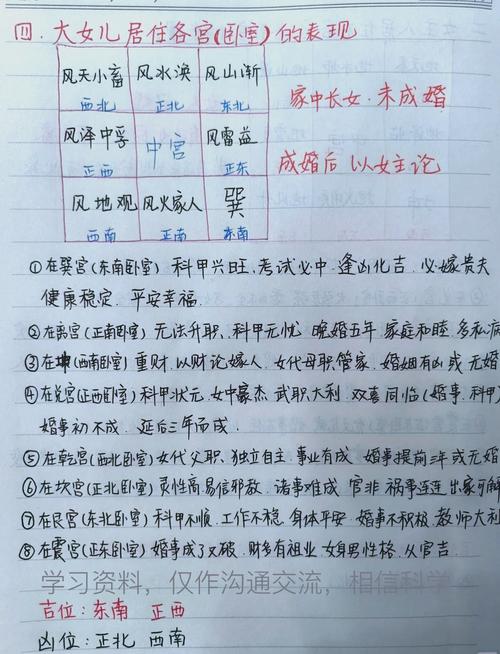 四.大女儿居住各宫(卧室)的表现
风天小畜 风水涣 风山渐
西北 正北 东北
家中长女.未成婚
风泽中孚 中宫 风雷益
正西 正东
成婚后 以女主论
风地观 风火家人 巽
西南 正南 东南
①在巽宫(东南卧室) 科甲兴旺.考试必中.逢凶化吉.必嫁贵夫
健康稳定.平安幸福.
②在离宫(正南卧室) 无法升职、科甲无忧 晚婚五年 家庭和睦.多私
③在坤(西南卧室)重财.以财论嫁人.女代母职管家.婚姻有凶或无婚
④在兑宫(正西卧室)科甲状元.女中豪杰 武职大利.双喜同临(婚事.科甲)
婚事初不成.延后三年而成.
⑤在乾宫(西北卧室)女代父职、独立自主.事业有成.婚事提前三年或无婚
⑥在坎宫(正北卧室)灵性高易信邪教.诸事难成.官非 祸事连连 出家可解
⑦在艮宫(东北卧室)科甲不顺.工作不稳.身体平安 婚事不积极.教师大利
⑧在震宫(正东卧室)婚事成了又破.财多有祖业 女身男性格.从官吉.
学习资料，仅作沟通交流，相信科学
吉位:东南 正西
凶位:正北 西南